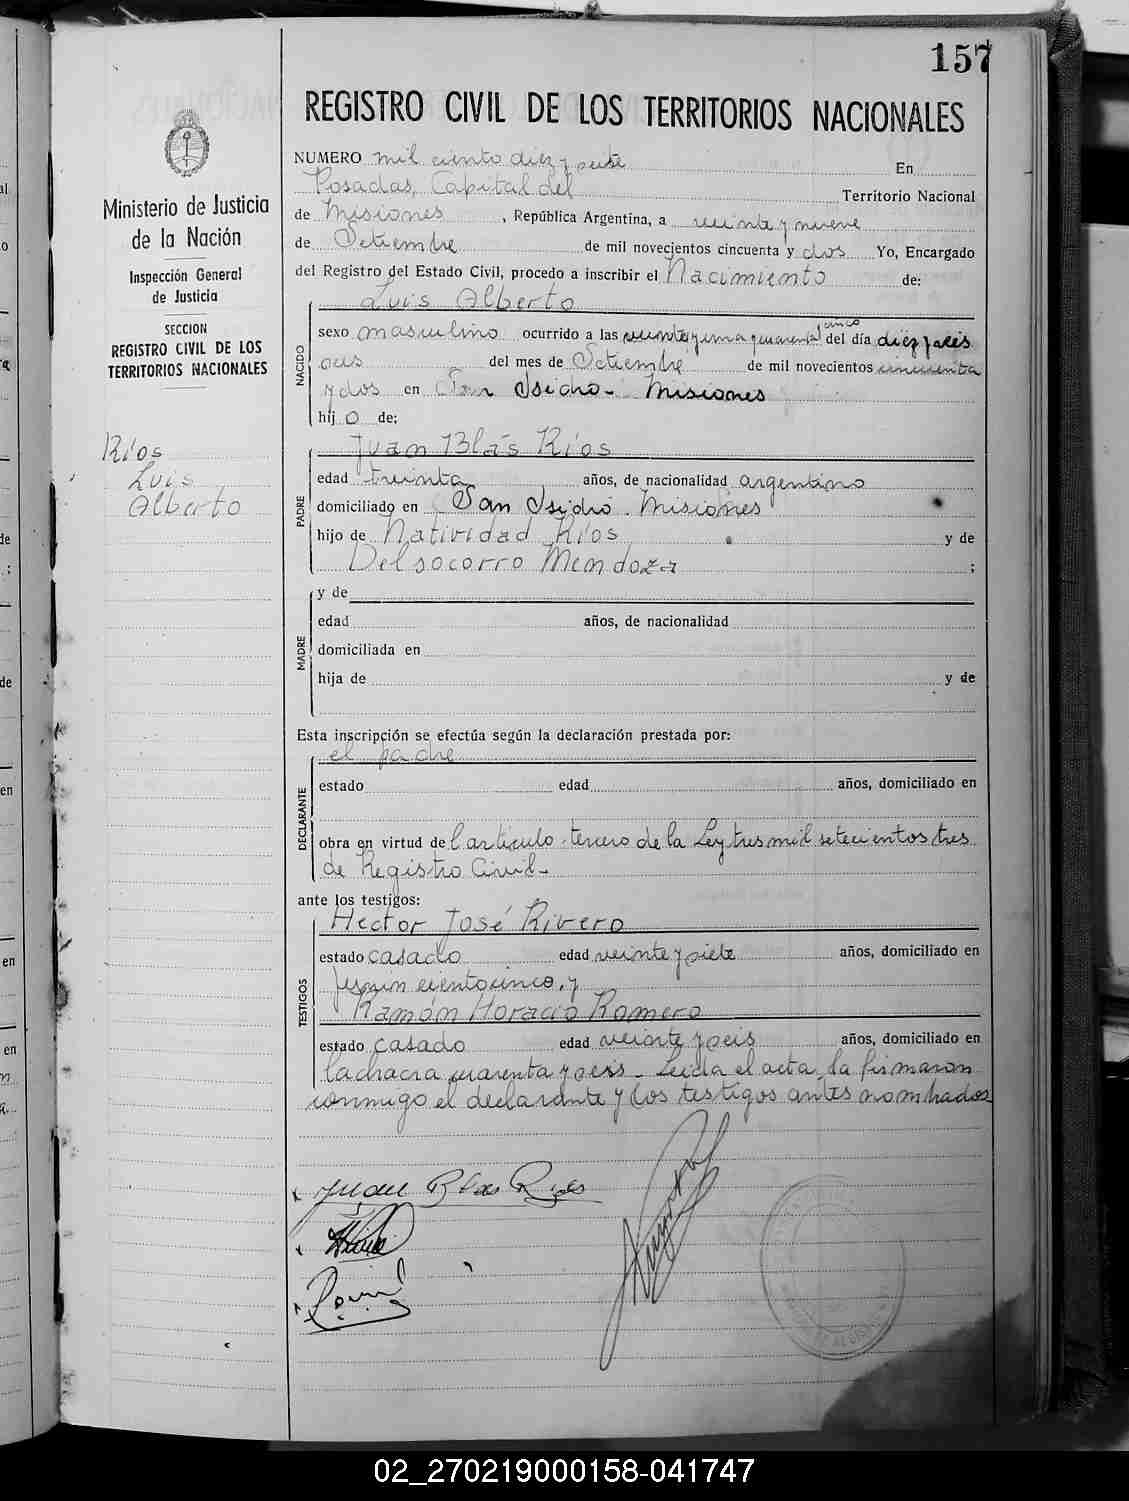 157
REGISTRO CIVIL DE LOS TERRITORIOS NACIONALES
Ministerio de Justicia
de la Nación
Inspección General
de Justicia
SECCION
REGISTRO CIVIL DE LOS
TERRITORIOS NACIONALES
Ríos
Luis
Alberto
NUMERO mil ciento diez y siete En
Posadas, Capital del Territorio Nacional
de Misiones, República Argentina, a veinte y nueve
de Setiembre de mil novecientos cincuenta y dos Yo, Encargado
del Registro del Estado Civil, procedo a inscribir el Nacimiento de:
NACIDO
Luis Alberto
sexo masculino ocurrido a las veinte y una cuarenta y cinco del día diez y seis
del mes de Setiembre de mil novecientos cincuenta
y dos en San Isidro - Misiones
hijo de:
PADRE
Juan Blás Ríos
edad treinta años, de nacionalidad argentino
domiciliado en San Isidro. Misiones
hijo de Natividad Ríos y de
Delsocorro Mendoza ;
MADRE
y de
edad años, de nacionalidad
domiciliada en
hija de y de
Esta inscripción se efectúa según la declaración prestada por:
DECLARANTE
el padre
estado edad años, domiciliado en
obra en virtud del artículo tercero de la Ley tres mil setecientos tres
de Registro Civil -
ante los testigos:
TESTIGOS
Hector José Rivero
estado casado edad veinte y siete años, domiciliado en
ciento cinco, y
Ramón Horacio Romero
estado casado edad veinte y seis años, domiciliado en
la chacra cuarenta y seis - Leida el acta la firmaron
conmigo el declarante y los testigos antes nombrados
Juan Blas Rios
02_270219000158-041747